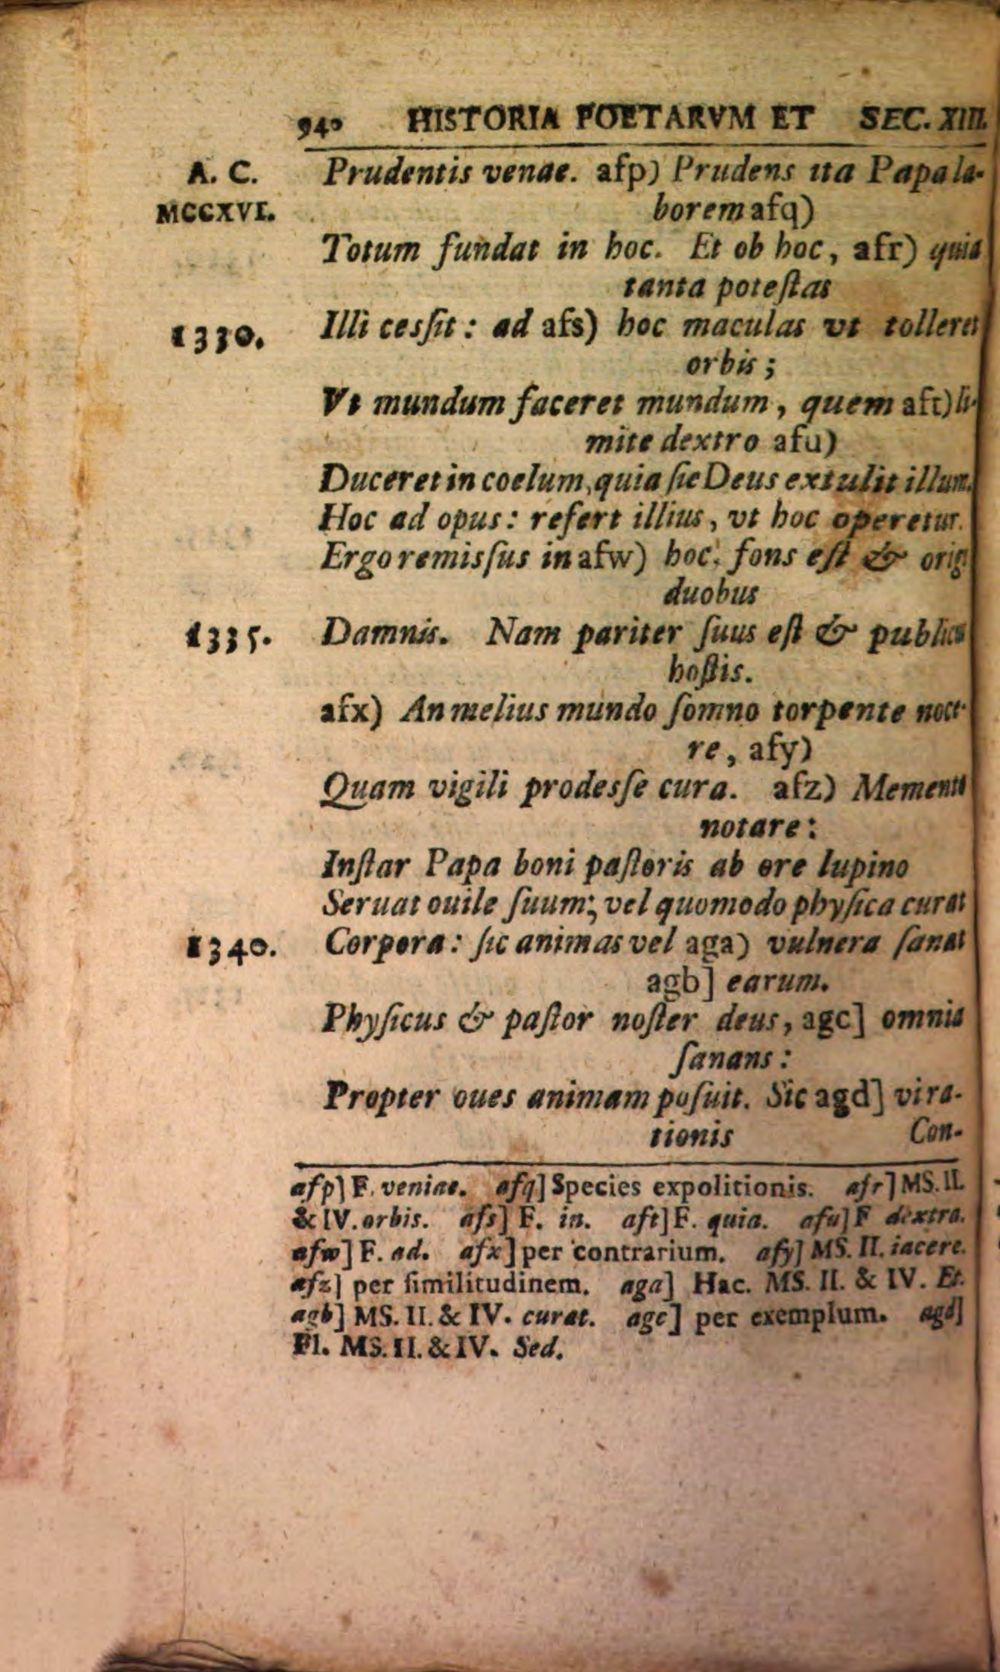 940 HISTORIA POETARVM ET SEC. XIII.
A. C. Prudentis venae. afp) Prudens ita Papa la-
MCCXVI. borem afq)
Totum fundat in hoc. Et ob hoc, afr) quia
tanta poteſtas
1330. Illi cesſit: ad afs) hoc maculas vt tolleret
orbis;
Vt mundum faceret mundum, quem aft) li-
mite dextro afu)
Duceret in coelum, quia ſie Deus extulit illum.
Hoc ad opus: refert illius, vt hoc operetur.
Ergo remisſus in afw) hoc, fons eſt & orig
duobus
1335. Damnis. Nam pariter ſuus eſt & publicus
hoſtis.
afx) An melius mundo ſomno torpente noce-
re, afy)
Quam vigili prodesſe cura. afz) Memento
notare:
Inſtar Papa boni paſtoris ab ore lupino
Seruat ouile ſuum; vel quomodo phyſica curat
1340. Corpora: ſic animas vel aga) vulnera ſanat
agb] earum.
Phyſicus & paſtor noſter deus, agc] omnia
ſanans:
Propter oues animam poſuit. Sic agd] vi ra-
tionis Con-
afp] F. veniae. afq] Species expolitionis. afr] MS. II.
& IV. orbis. afs] F. in. aft] F. quia. afu] F dextra.
afw] F. ad. afx] per contrarium. afy] MS. II. iacere.
afz] per ſimilitudinem. aga] Hac. MS. II. & IV. Et.
agb] MS. II. & IV. curat. agc] per exemplum. agd]
Fl. MS. II. & IV. Sed.